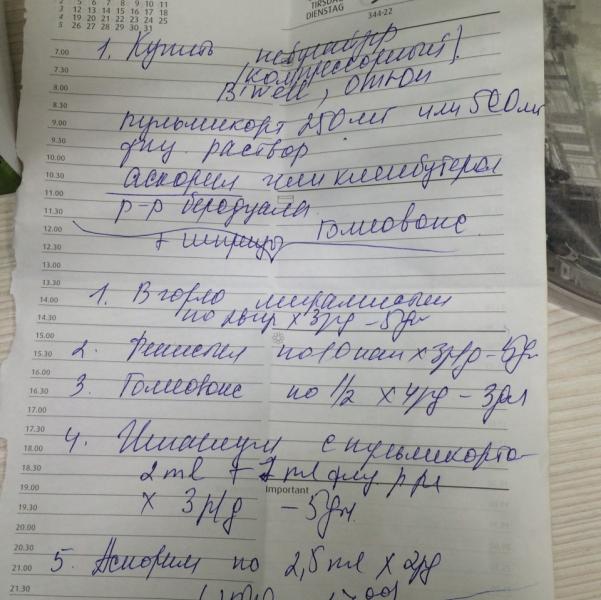 5 6 7 8 9 10 11
3 12 13 14 15 16 17 18
4 19 20 21 22 23 24 25
5 26 27 28 29 30 31
TIRSDAG
DIENSTAG
344-22
1. Купить небулайзер
7.00
(компрессорный).
7.30
B.Well, Омрон
8.00
пульмикорт 250 мг или 500 мг
8.30
9.00
физ. раствор
9.30
10.00
аскорил или кленбутерол
10.30
11.00
р-р беродуала
11.30
Гомеовокс
12.00
+ шприцы
12.30
13.00
13.30
1. В горло мирамистин
14.00
по 2 впр х 3 рд - 5 дн
14.30
15.00
2. по 10 кап х 3 р/д - 5 дн
15.30
16.00
3. Гомеовокс по 1/2 х 4 рд - 3 дня
16.30
17.00
17.30
4. с пульмикорто
18.00
2 ml + 2 ml физ р ра
18.30
19.00
Important
х 3 р/д - 5 дн.
19.30
20.00
20.30
5. Аскорил по 2,5 ml х 2 рд
21.00
21.30